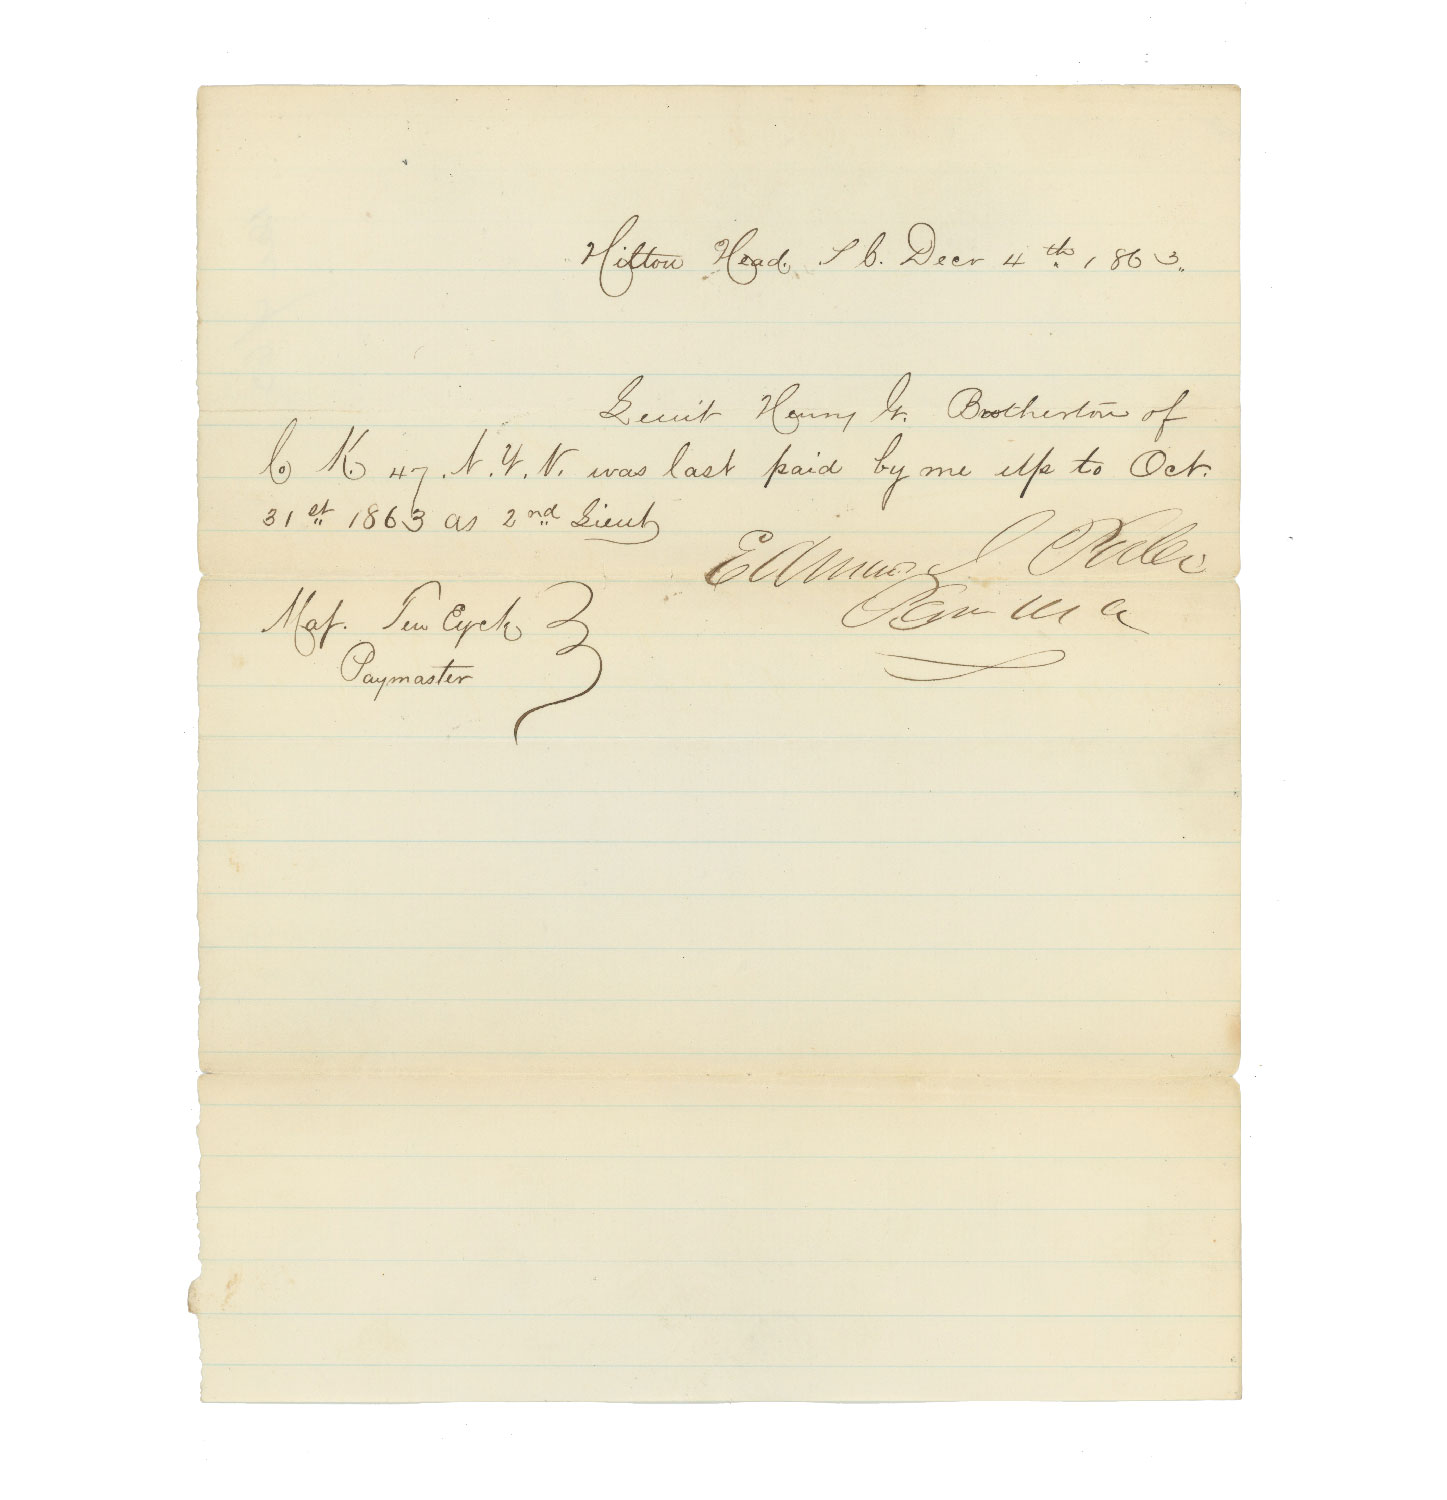 Hilton Head. S C. Decr 4th 1863.
Leuit Henry W. Brotherton of
Co K. 47. N.Y.V. was last paid by me up to Oct.
31st 1863 as 2nd Lieut
Edmund
Maj. Ten Eyck
Paymaster